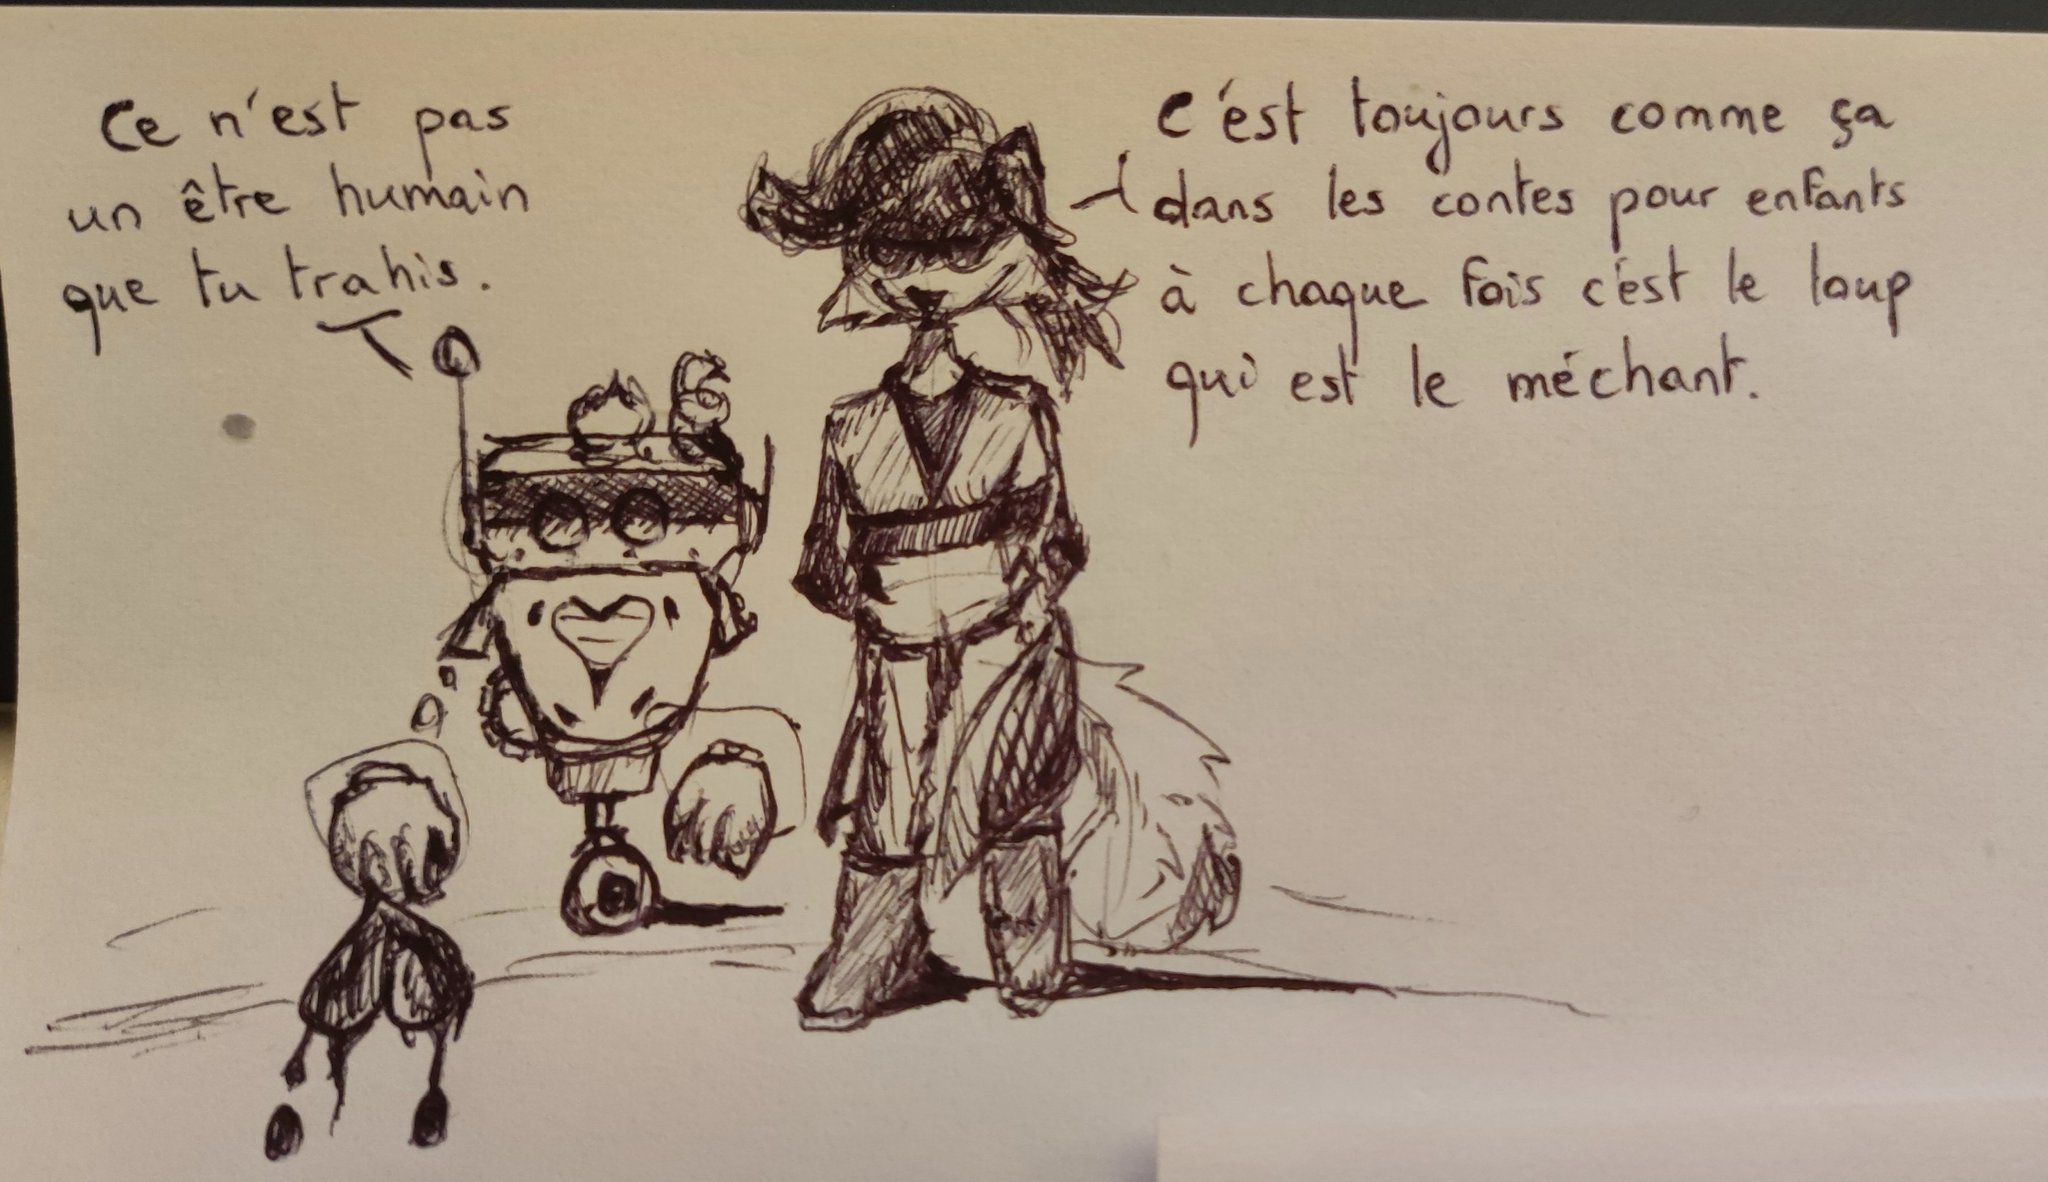 Ce n'est pas
un être humain
que tu trahis.
C'est toujours comme ça
dans les contes pour enfants
à chaque fois c'est le loup
qui est le méchant.